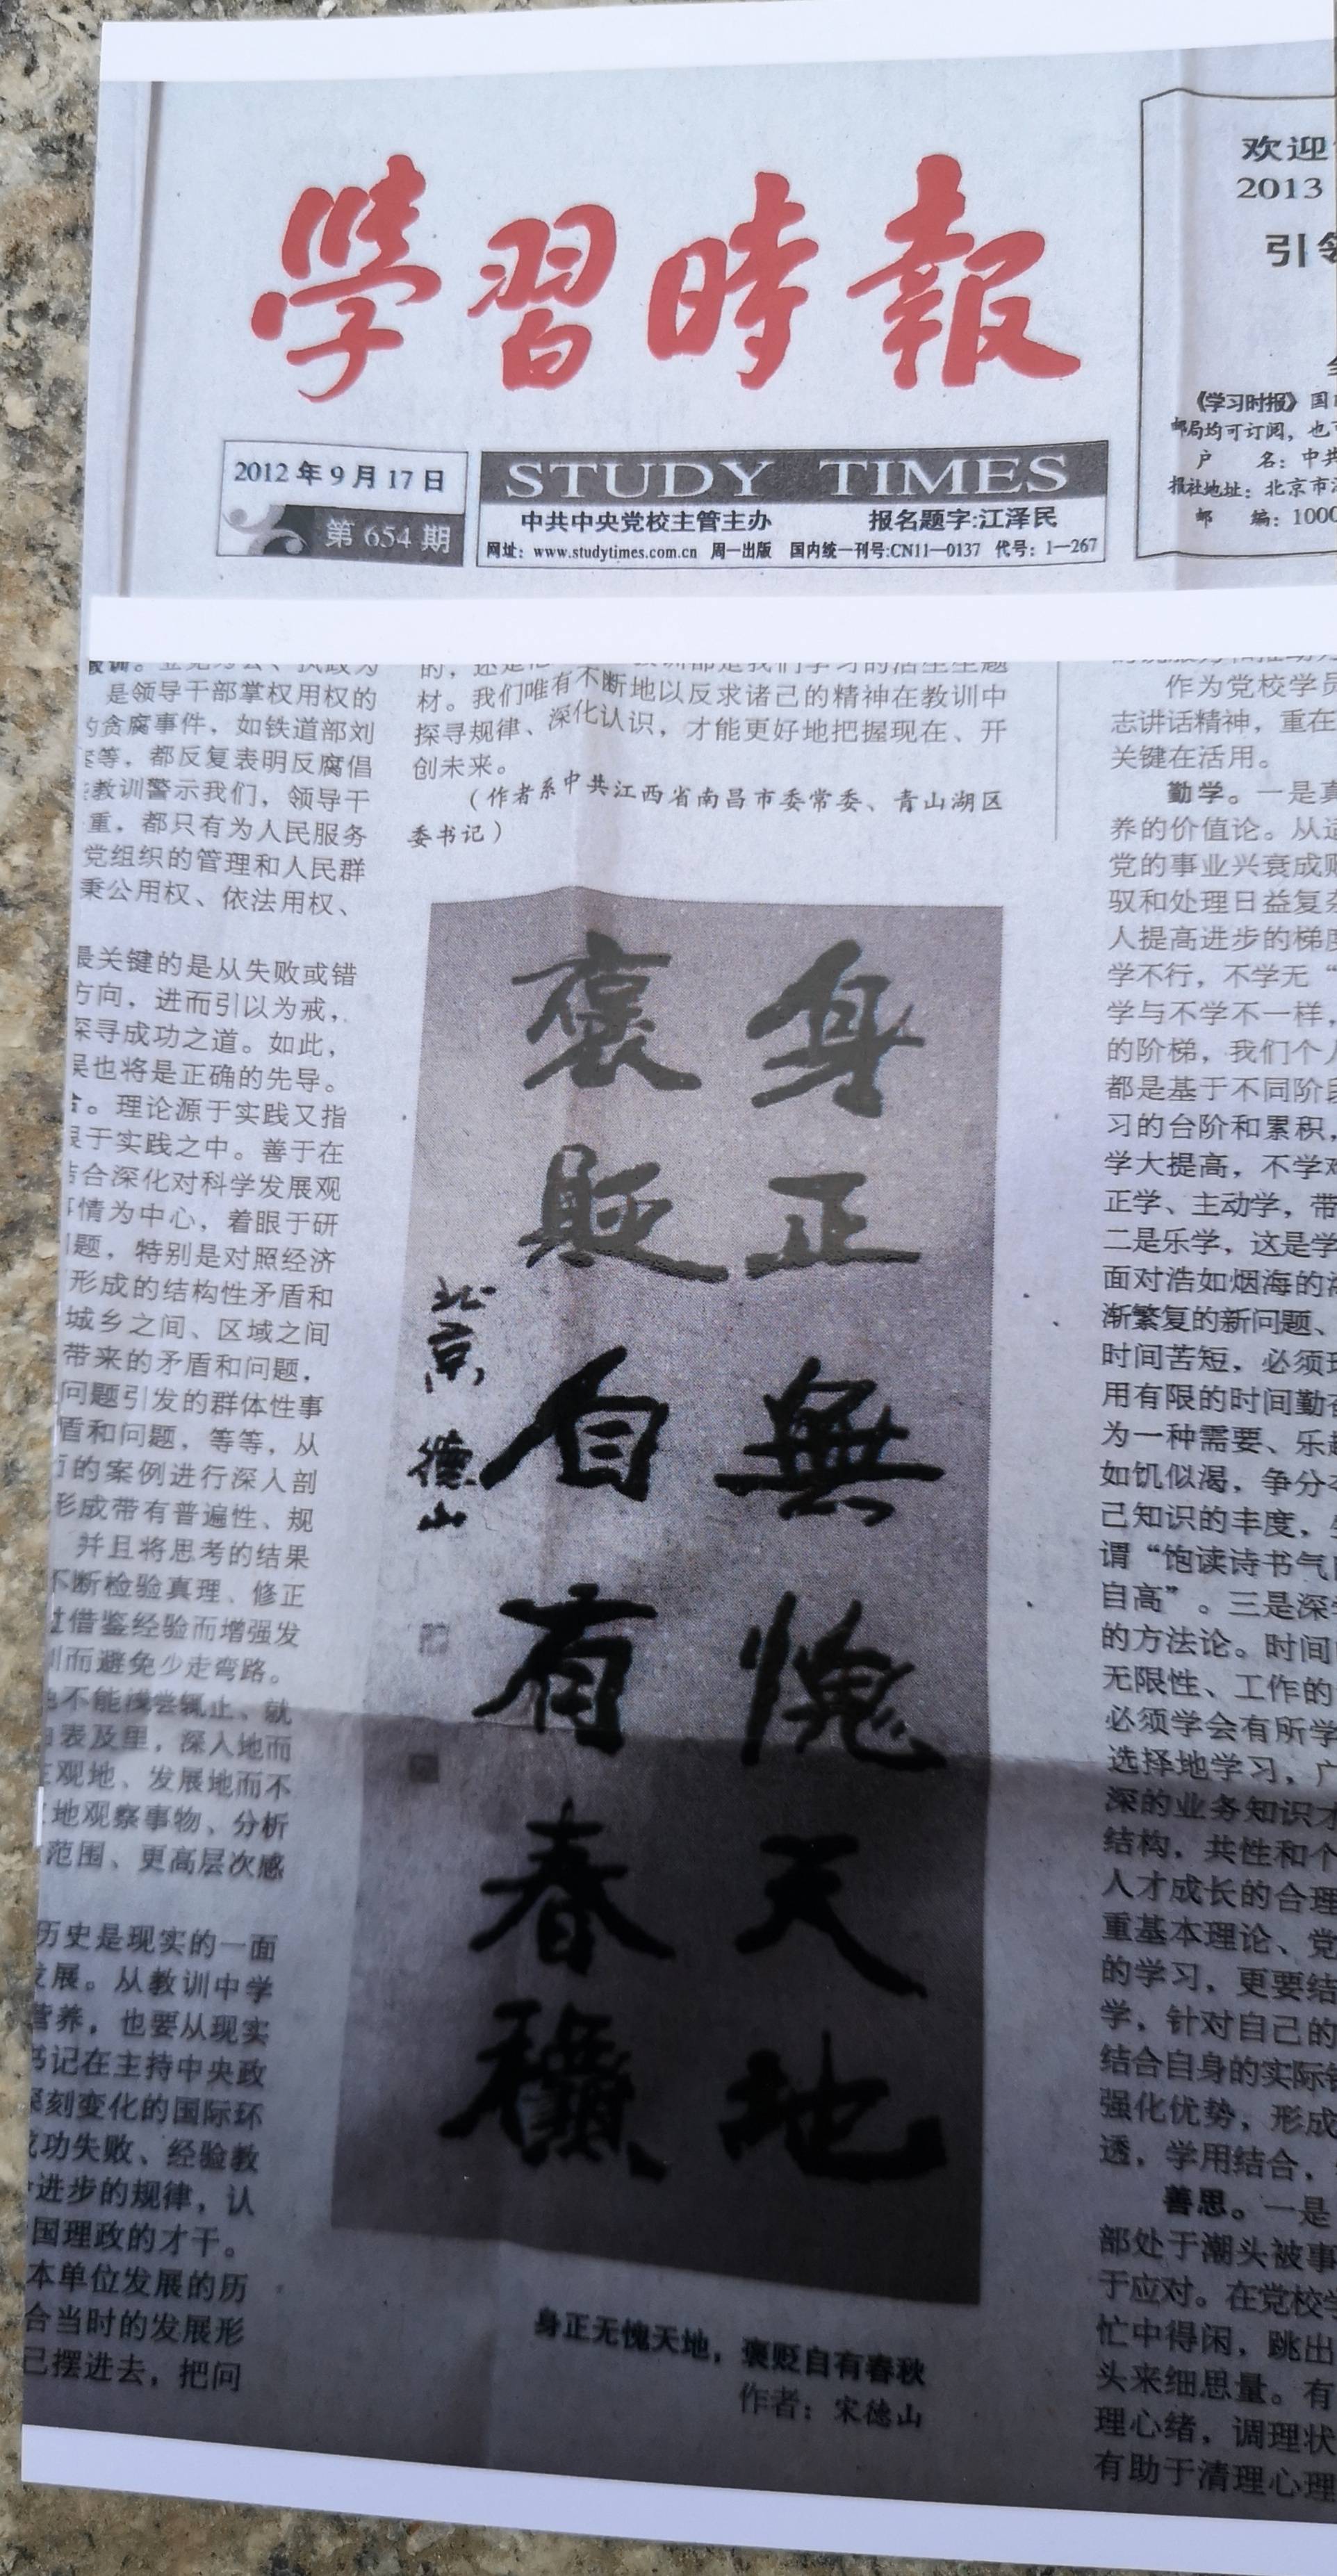 學習時報
2012年9月17日
第654期
STUDY TIMES
中共中央党校主管主办 报名题字:江泽民
网址：www.studytimes.com.cn 周一出版 国内统一刊号:CN11—0137 代号：1—267
欢迎
2013
引领
《学习时报》国
邮局均可订阅，也
户 名：中共
报社地址：北京市
邮 编：1000
是领导干部掌权用权的
的贪腐事件，如铁道部刘
等，都反复表明反腐倡
教训警示我们，领导干
重，都只有为人民服务
党组织的管理和人民群
秉公用权、依法用权、
最关键的是从失败或错
方向，进而引以为戒，
探寻成功之道。如此，
误也将是正确的先导。
合。理论源于实践又指
于实践之中。善于在
结合深化对科学发展观
事情为中心，着眼于研
问题，特别是对照经济
形成的结构性矛盾和
城乡之间、区域之间
带来的矛盾和问题，
问题引发的群体性事
盾和问题，等等，从
的案例进行深入剖
形成带有普遍性、规
并且将思考的结果
不断检验真理、修正
过借鉴经验而增强发
训而避免少走弯路。
也不能浅尝辄止、就
由表及里，深入地而
观地、发展地而不
地观察事物、分析
范围、更高层次感
历史是现实的一面
发展。从教训中学
营养，也要从现实
书记在主持中央政
深刻变化的国际环
成功失败、经验教
进步的规律，认
国理政的才干。
本单位发展的历
合当时的发展形
己摆进去，把问
材。我们唯有不断地以反求诸己的精神在教训中
探寻规律、深化认识，才能更好地把握现在、开
创未来。
（作者系中共江西省南昌市委常委、青山湖区
委书记）
身正無愧天地
褒貶自有春穐
北京 德山
身正无愧天地，褒贬自有春秋
作者：宋德山
作为党校学员
志讲话精神，重在
关键在活用。
勤学。一是真
养的价值论。从
党的事业兴衰成败
驭和处理日益复杂
人提高进步的梯
学不行，不学无“
学与不学不一样，
的阶梯，我们个人
都是基于不同阶段
习的台阶和累积，
学大提高，不学
正学、主动学，带
二是乐学，这是学
面对浩如烟海的
渐繁复的新问题、
时间苦短，必须
用有限的时间勤
为一种需要、乐
如饥似渴，争分
己知识的丰度，
谓“饱读诗书气
自高”。三是深
的方法论。时间
无限性、工作的
必须学会有所学
选择地学习，广
深的业务知识才
结构，共性和个
人才成长的合理
重基本理论、党
的学习，更要结
学，针对自己的
结合自身的实际
强化优势，形成
透，学用结合，
善思。一是
部处于潮头被事
于应对。在党校学
忙中得闲，跳出
头来细思量。有
理心绪，调理状
有助于清理心理